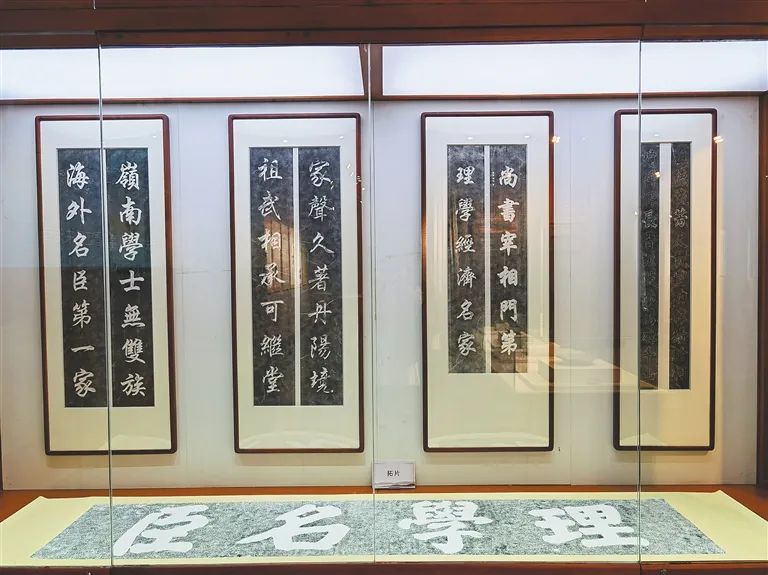 尚書宰相門第
理學經濟名家
家聲久著丹陽境
祖武相承可繼堂
嶺南學士無雙族
海外名臣第一家
拓片
理學名臣